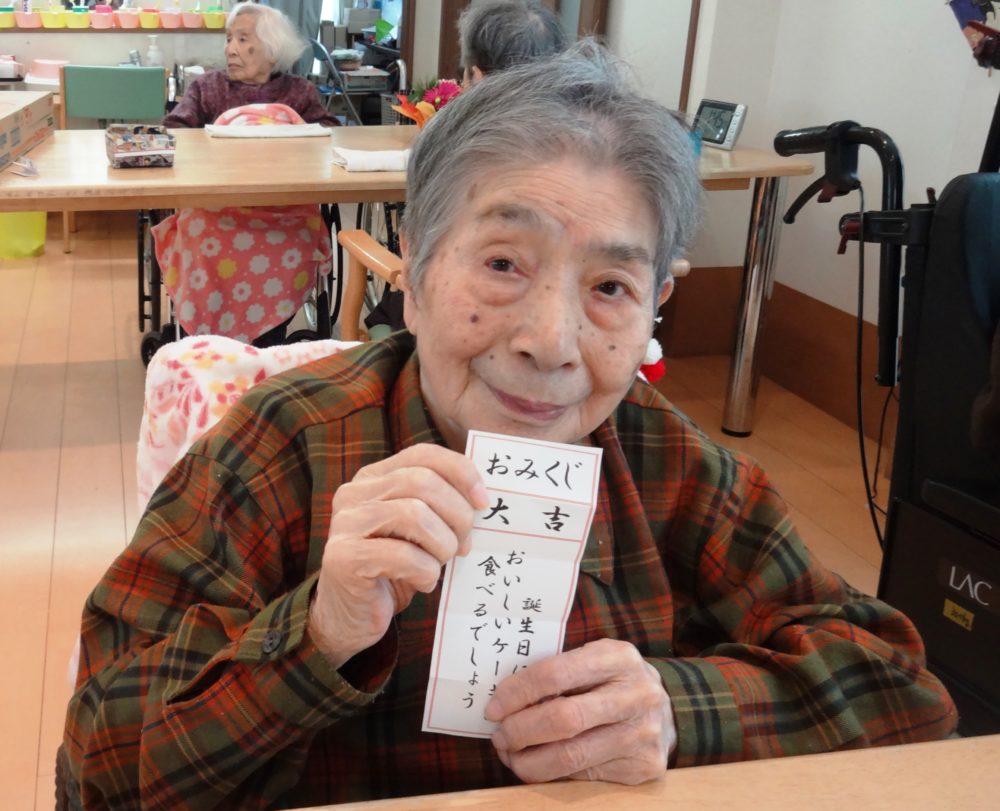 おみくじ
大吉
誕生日に
おいしいケーキ
食べるでしょう
LAC